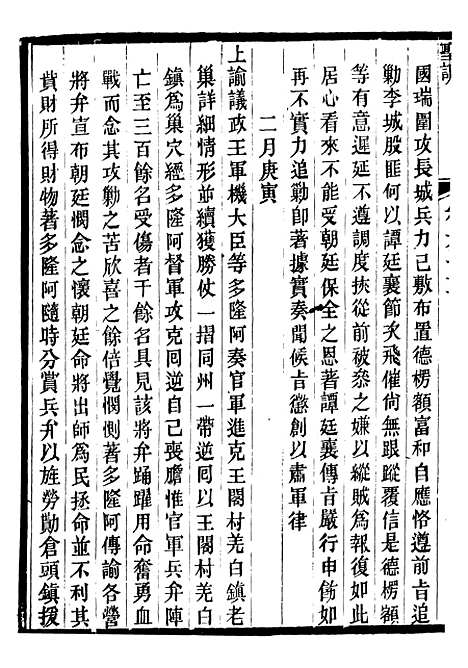 聖訓
國瑞圍攻長城兵力已敷布置德楞額富和自應恪遵前旨追
勦李城股匪何以譚廷襄節次飛催尚無跟蹤覆信是德楞額
等有意遲延不遵調度挾從前被叅之嫌以縱賊爲報復如此
居心看來不能受朝廷保全之恩著譚廷襄傳旨嚴行申飭如
再不實力追勦卽著據實奏聞候旨懲創以肅軍律
二月庚寅
上諭議政王軍機大臣等多隆阿奏官軍進克王閣村羌白鎮老
巢詳細情形並續獲勝仗一摺同州一帶逆回以王閣村羌白
鎮爲巢穴經多隆阿督軍攻克回逆自己喪膽惟官軍兵弁陣
亡至三百餘名受傷者千餘名具見該將弁踴躍用命奮勇血
戰而念其攻勦之苦欣喜之餘倍覺憫惻著多隆阿傳諭各營
將弁宣布朝廷憫念之懷朝廷命將出師爲民拯命並不利其
貲財所得財物著多隆阿隨時分賞兵弁以旌勞勩倉頭鎮援